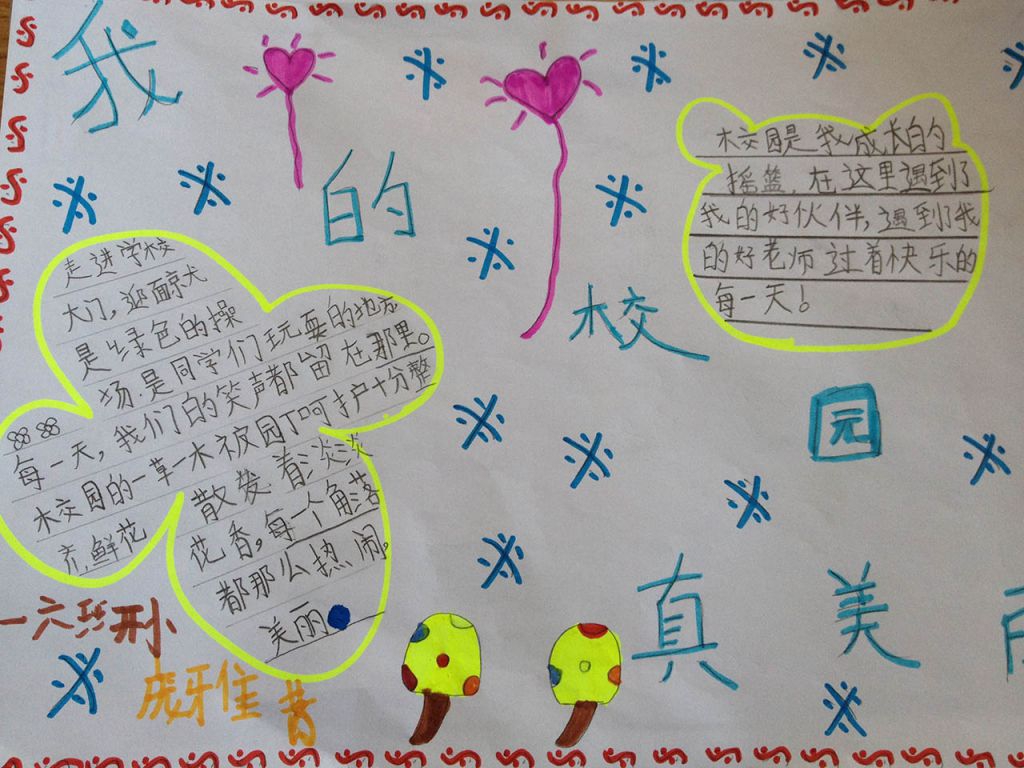 我的校园真美
校园是我成长的
摇篮.在这里遇到了
我的好伙伴,遇到了我
的好老师过着快乐的
每一天!
走进学校
大门,迎面
是绿色的操
场.是同学们玩耍的地方
每一天,我们的笑声都留在那里。
校园的一草一木被园丁呵护十分整
齐.鲜花
散发着淡淡
花香,每一个角落
都那么热闹.
美丽